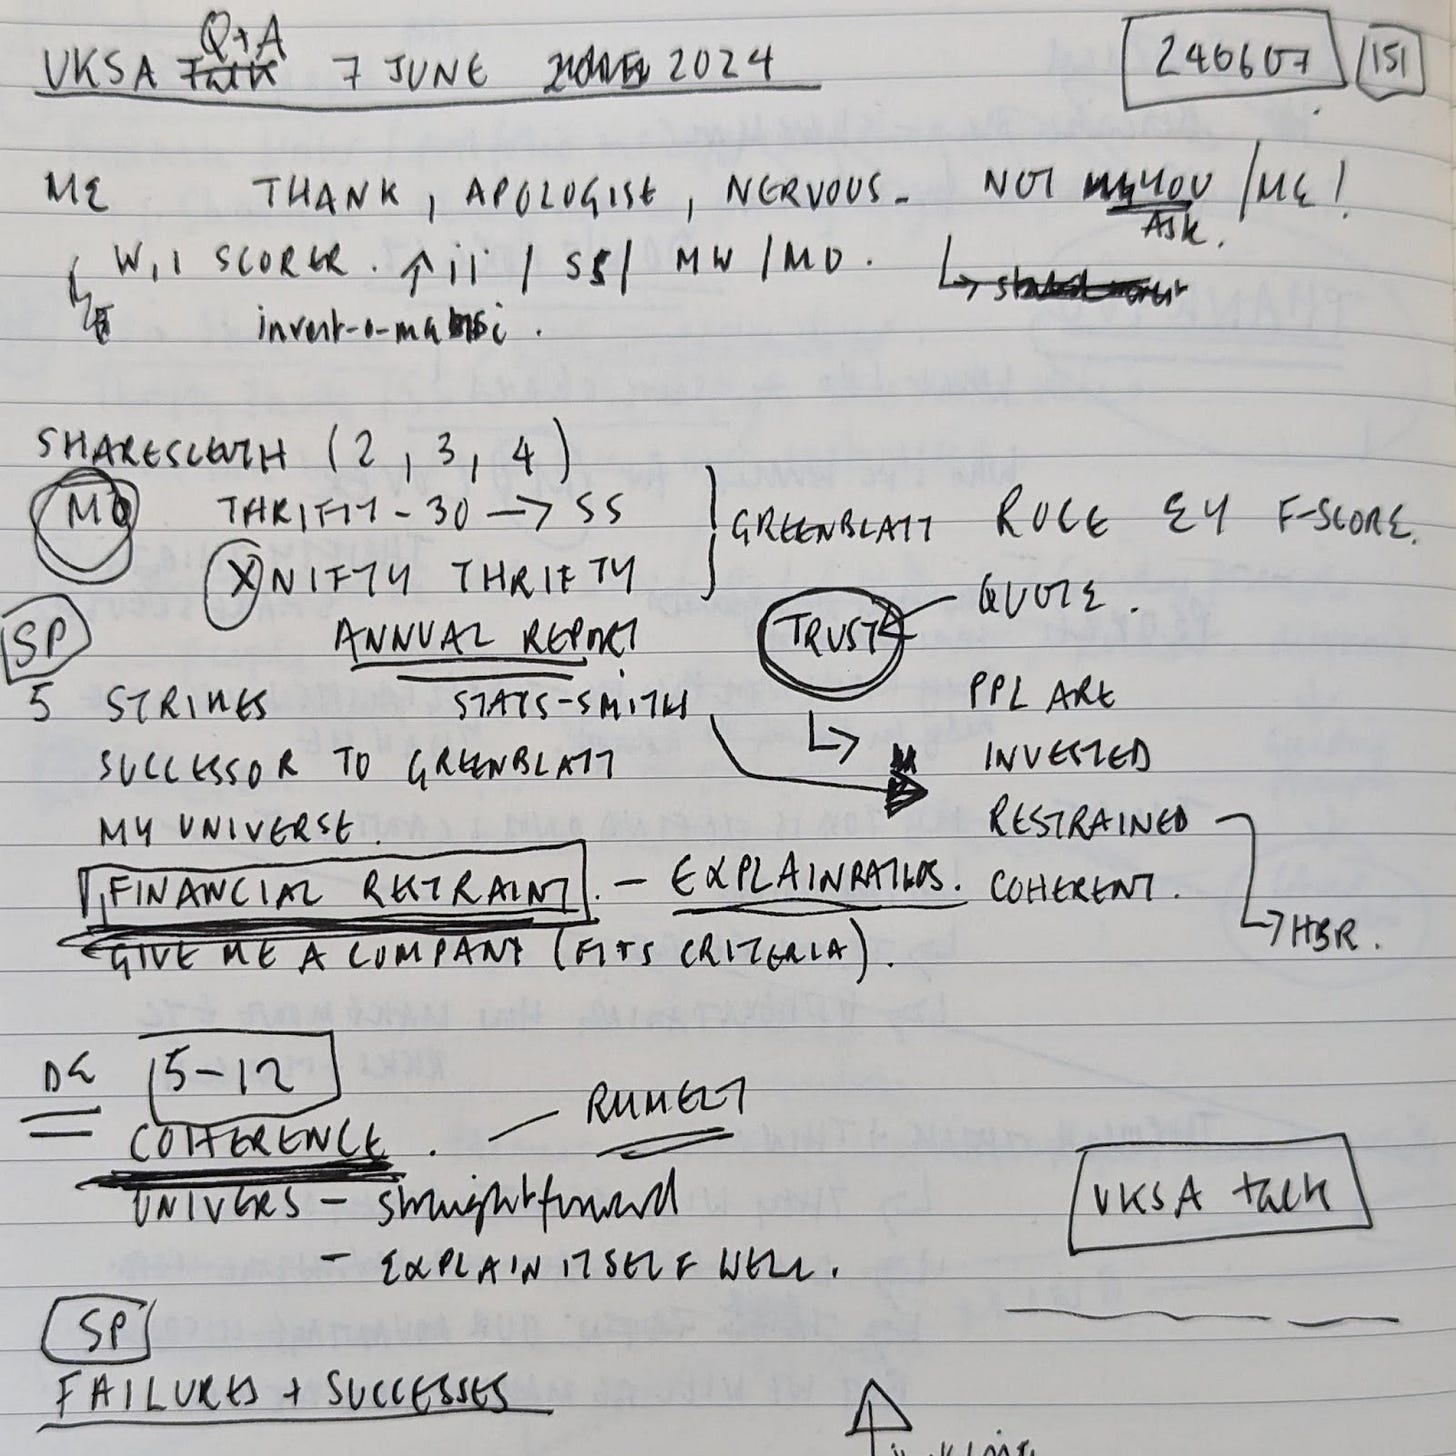 Q+A
UKSA Talk 7 JUNE 2024
240607 151
ME THANK, APOLOGISE, NERVOUS. NOT YOU / ME!
Ask.
SCORER. ↑ ii / SS / MW / MD.
invest-o-ma
SHARESLEUTH (2, 3, 4)
MD THRIFTY-30 → SS
X NIFTY THRIFTY
GREENBLATT RULE EY F-SCORE.
QUOTE.
SP ANNUAL REPORT TRUST
5 STRIKES STATS-SMITH PPL ARE
SUCCESSOR TO GREENBLATT INVESTED
MY UNIVERSE. RESTRAINED
FINANCIAL RETRAINT. - COHERENT.
→ HBR.
GIVE ME A COMPANY (FITS CRITERIA).
DE 5-12
COHERENCE. - RUMELT
UNIVERS - straightforward
- EXPLAIN ITSELF WELL.
UKSA talk
SP
FAILURES + SUCCESSES